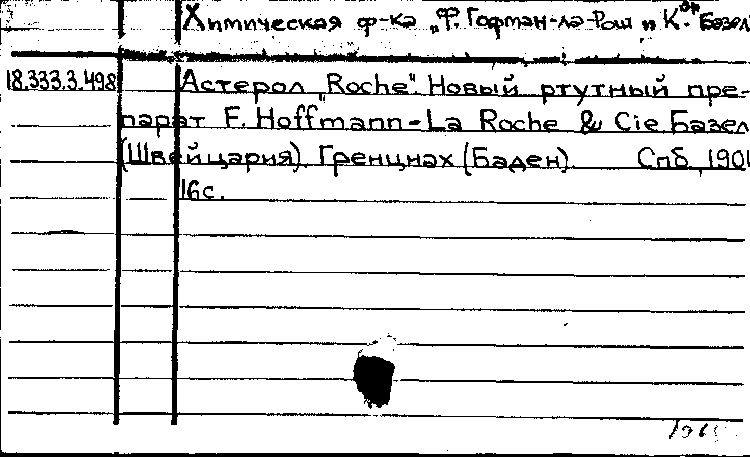 Химическая ф-ка „Ф. Гофман-ла-Рош и К.ᵒ" Базел
18.333.3.498 Астерол „Roche". Новый ртутный пре-
парат F. Hoffmann-La Roche & Cie Базел
(Швейцария). Гренцнах (Баден). Спб, 1901
16с.